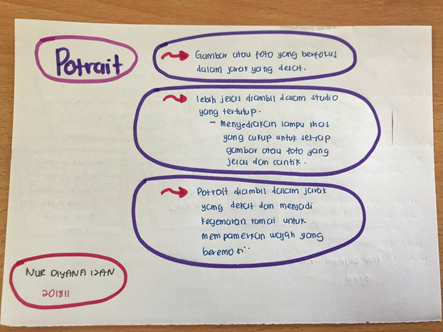 Potrait
Gambar atau foto yang berfokus
dalam jarak yang dekat.
lebih jelas diambil dalam studio
yang tertutup.
- menyediakan lampu khas
yang cukup untuk setiap
gambar atau foto yang
jelas dan cantik.
Potrait diambil dalam jarak
yang dekat dan menjadi
kegemaran ramai untuk
mempamerkan wajah yang
beremosi.
NUR DIYANA IZAN
201811